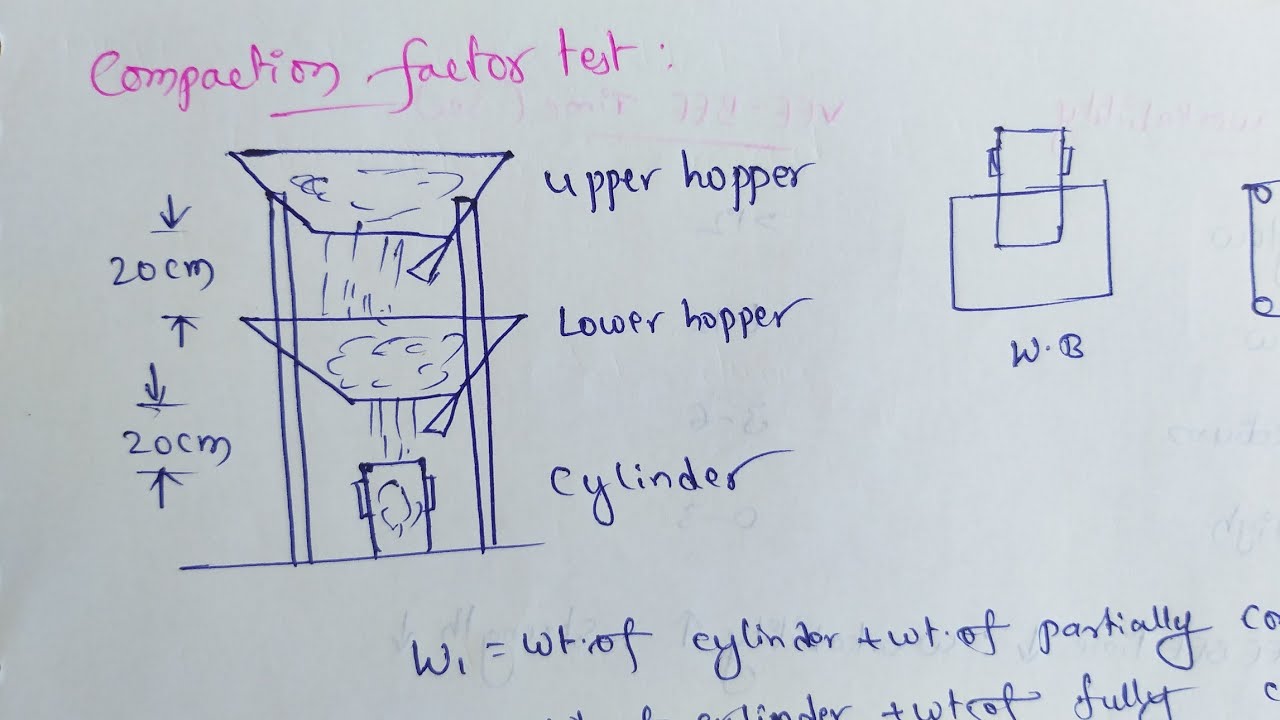 Compaction factor test:
upper hopper
20cm
Lower hopper
W.B
20cm
cylinder
W1 = wt.of cylinder + wt.of partially
cylinder + wt.of fully